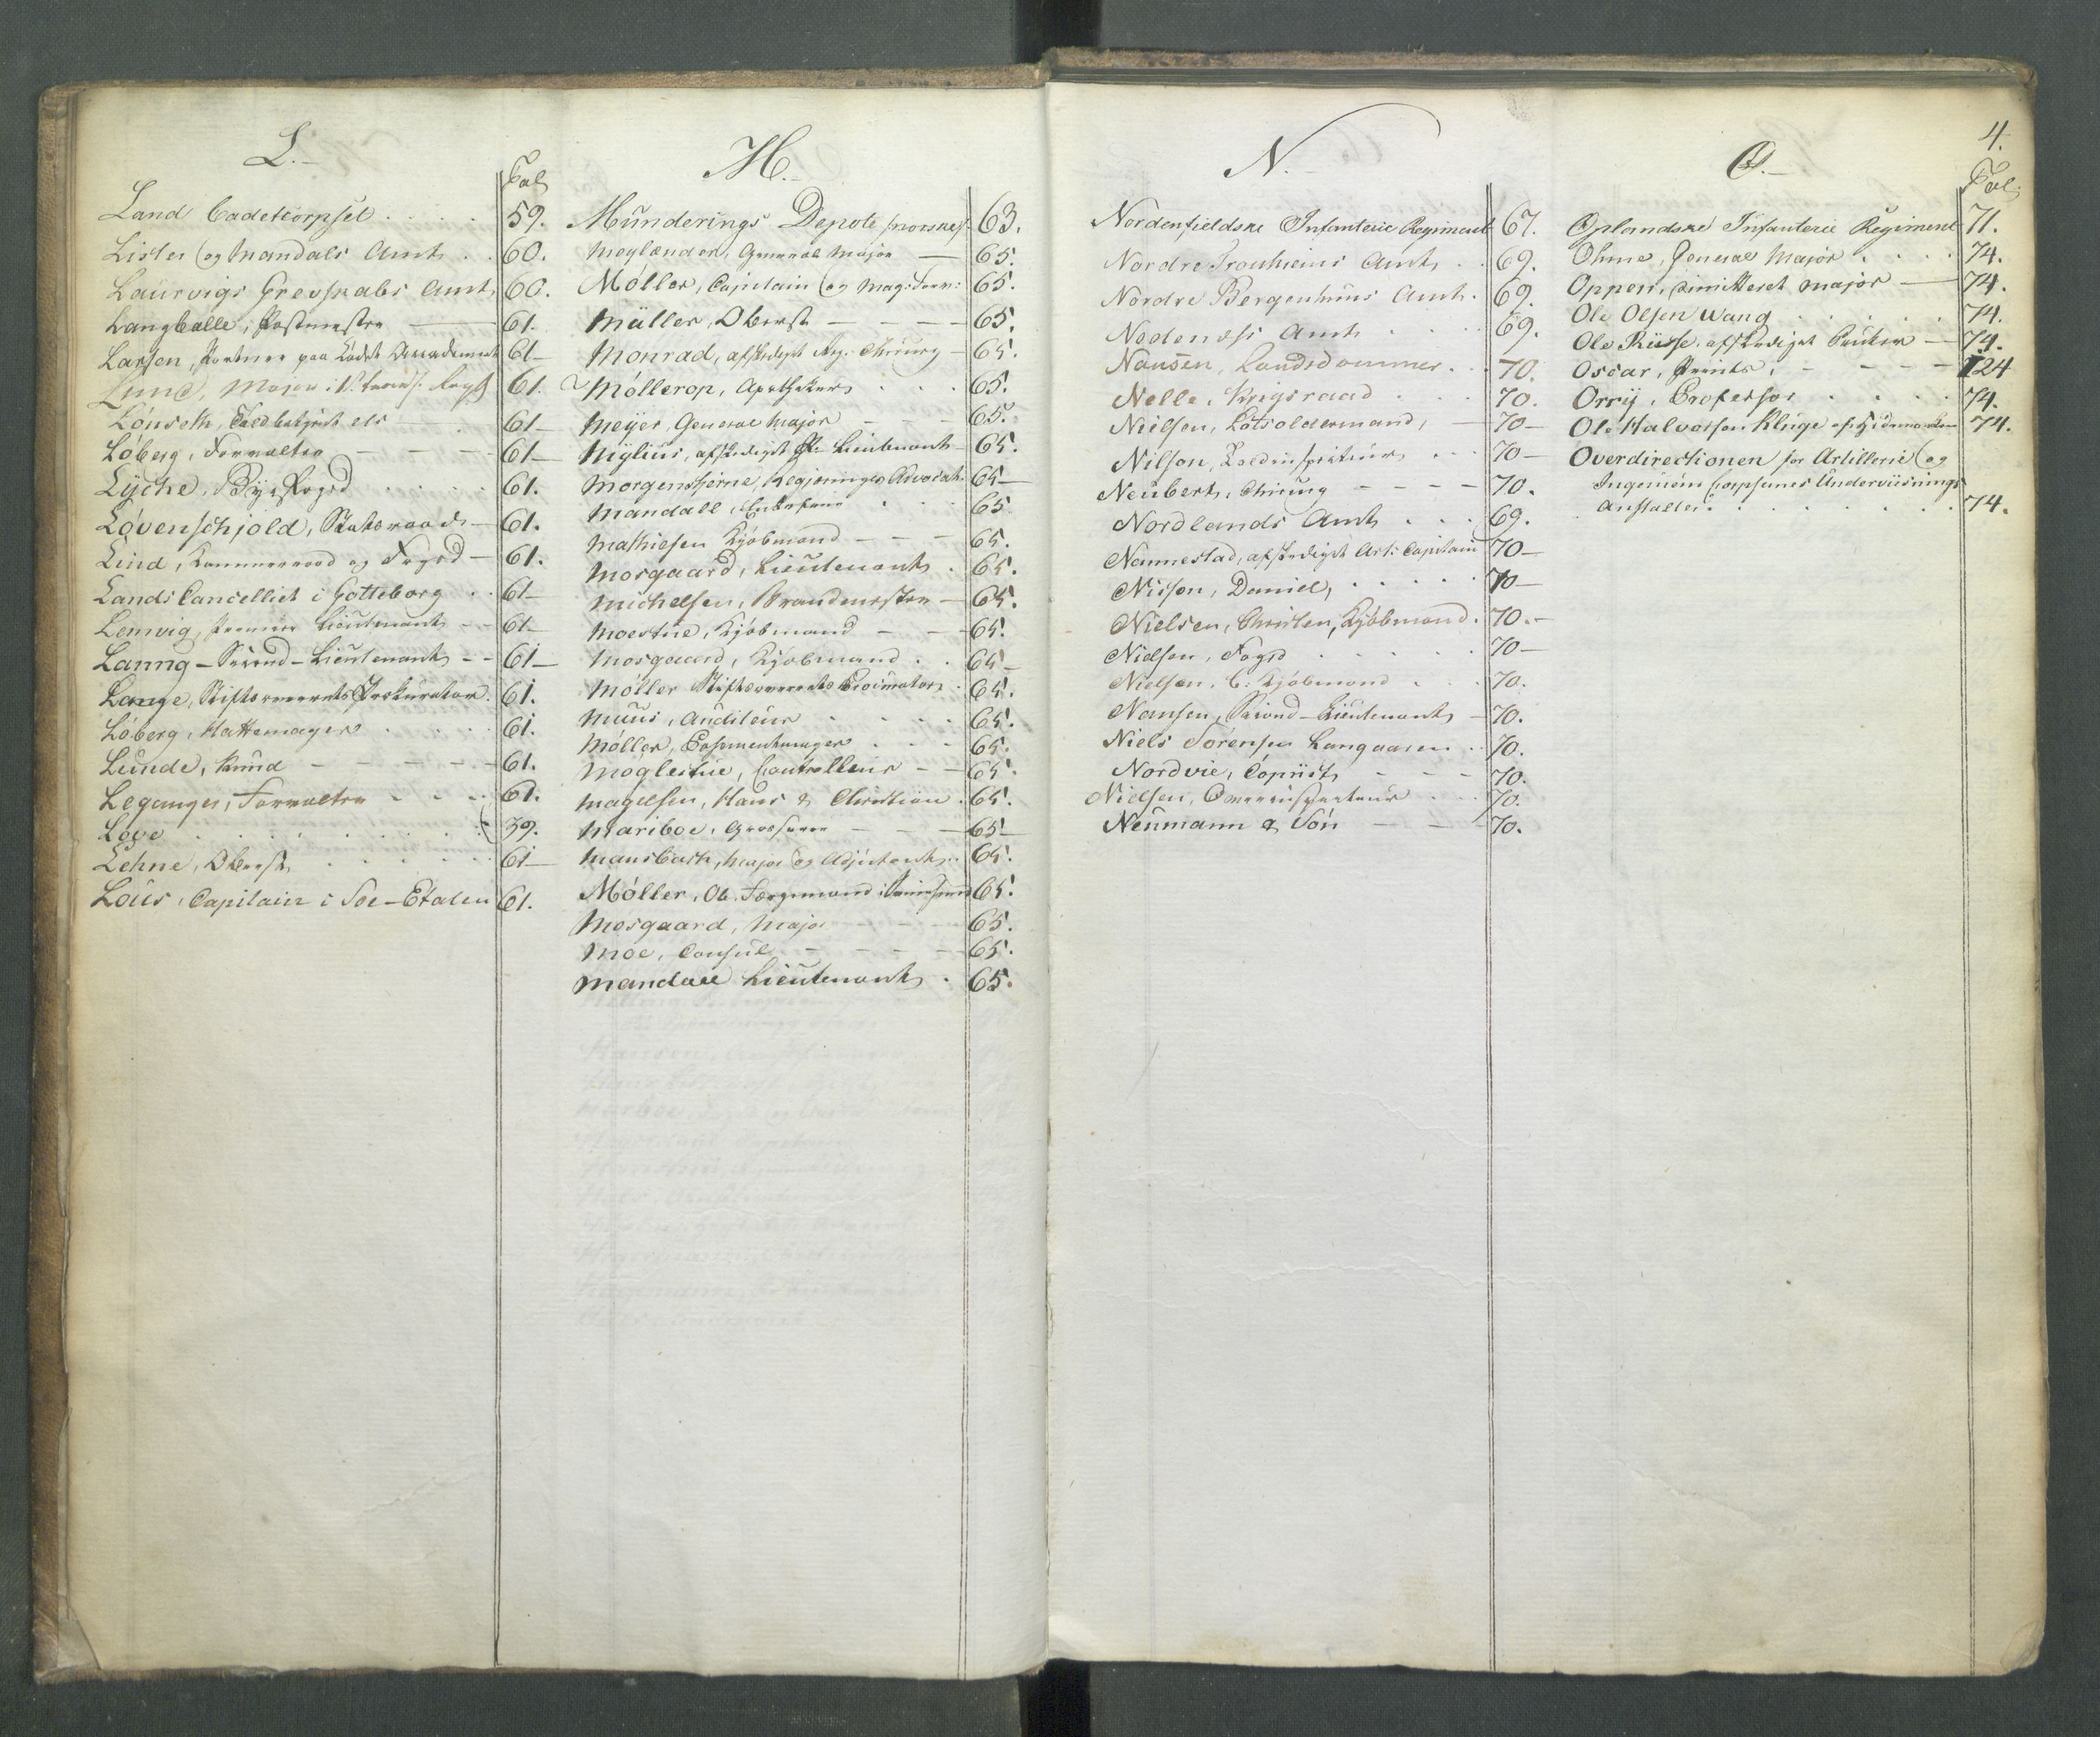 L.
Fol.
Land Cadetcorpset . . . . 59.
Lister og Mandals Amt . . 60.
Laurvigs Grevskabs Amt 60.
Langballe, Postmester — 61.
Larsen, Portner paa Lødt Academiet 61-
Lund, Major i 61.
Lønseth, 61-
Løberg, Forvalter — — — 61-
Lyche, Byefoged . . . . 61.
Løvenschjold, Statsraad — 61.
Lind, Kammerraad og Foged — 61.
Lands Cancelliet i Gøtteborg . . 61-
Lemvig, Premier Lieutenant — — 61-
Lanng - Second-Lieutenant — — 61-
Lange, Stiftsoverrets Prokurator. 61.
Løberg, Hattemager . . . . 61.
Lunde, Knud — — — — — 61.
Leganger, Forvalter . . . . 61.
Løve . . . . . . . 39.
Lehne, Oberst . . . . . . 61-
Loüs, Capitain i Søe-Etaten 61.
M.
Munderings Depote norske 63.
Meglænder, General Major — 65.
Møller, Capitain og Mag: Forv: 65.
Müller, Oberst — — — — 65.
Monrad, afskediget Reg: Chirurg — 65.
Møllerop, Apotheker . . . 65.
Meyer, General Major — — — 65.
Mylius, afskediget Pr: Lieutenant — 65.
Morgenstierne, Regjerings Advocat. 65-
Mandall, Enkefrue . . . 65
Mathiesen Kjøbmand — — — 65.
Mosgaard, Lieutenant . 65.
Michelsen, Brandmester — 65.
Moestue, Kjøbmand — — — 65.
Mosgaard, Kjøbmand . . 65-
Møller Stiftsoverrets Procurator . 65.
Muus, Auditeur . . . . 65.
Møller, Possementmager . . . 65.
Møglestue, Controlleur — — 65.
Magelsen, Hans & Christian . 65.
Mariboe, Grosserer — — — 65-
Mansbach, Major og Adjutant . . 65.
Møller, Ob. Færgemand i 65.
Mosgaard, Major — — — 65.
Moe, Consul — — — — 65.
Mandall Lieutenant . 65.
N.
Nordenfieldske Infanterie Regiment 67.
Nordre Tronhiems Amt . . 69.
Nordre Bergenhuus Amt . 69.
Nedenæss Amt . . . . 69.
Nansen, Landsdommer . . 70.
Nelle, Krigsraad . . . 70.
Nielsen, Lotsoldermand, — 70-
Nilson, Toldinspecteur . . . 70-
Neubert, Chirurg — — — — 70.
Nordlands Amt . . . 69.
Nannestad, afskediget Art: Capitain 70-
Nisson, Daniel, . . . . . 70-
Nielsen, Christen, Kjøbmand . 70.-
Nielsen, Foged . . . . . 70-
Nielsen, C: Kjøbmand . . . 70.
Nansen, Second-Lieutenant — 70.
Niels Sørensen Langaasen . . 70.
Nordvie, Copiist — — — 70.
Nielsen, . . 70.
Neumann & Søn — — — 70.
4.
O.
Fol:
Oplandske Infanterie Regiment 71.
Ohme, General Major . . . . 74.
Oppen, dimitteret Major — 74.
Ole Olsen Wang . . . . . 74.
Ole Riise, afskediget — 74.
Oscar, Prints, — — — — 124
Orry, Professor . . . . . 74.
Ole Halvorsen Kluge af Hedemarken 74.
Overdirectionen for Artillerie og
Ingenieur Corpsernes Underviisnings
Anstalter . . . . . . . 74.